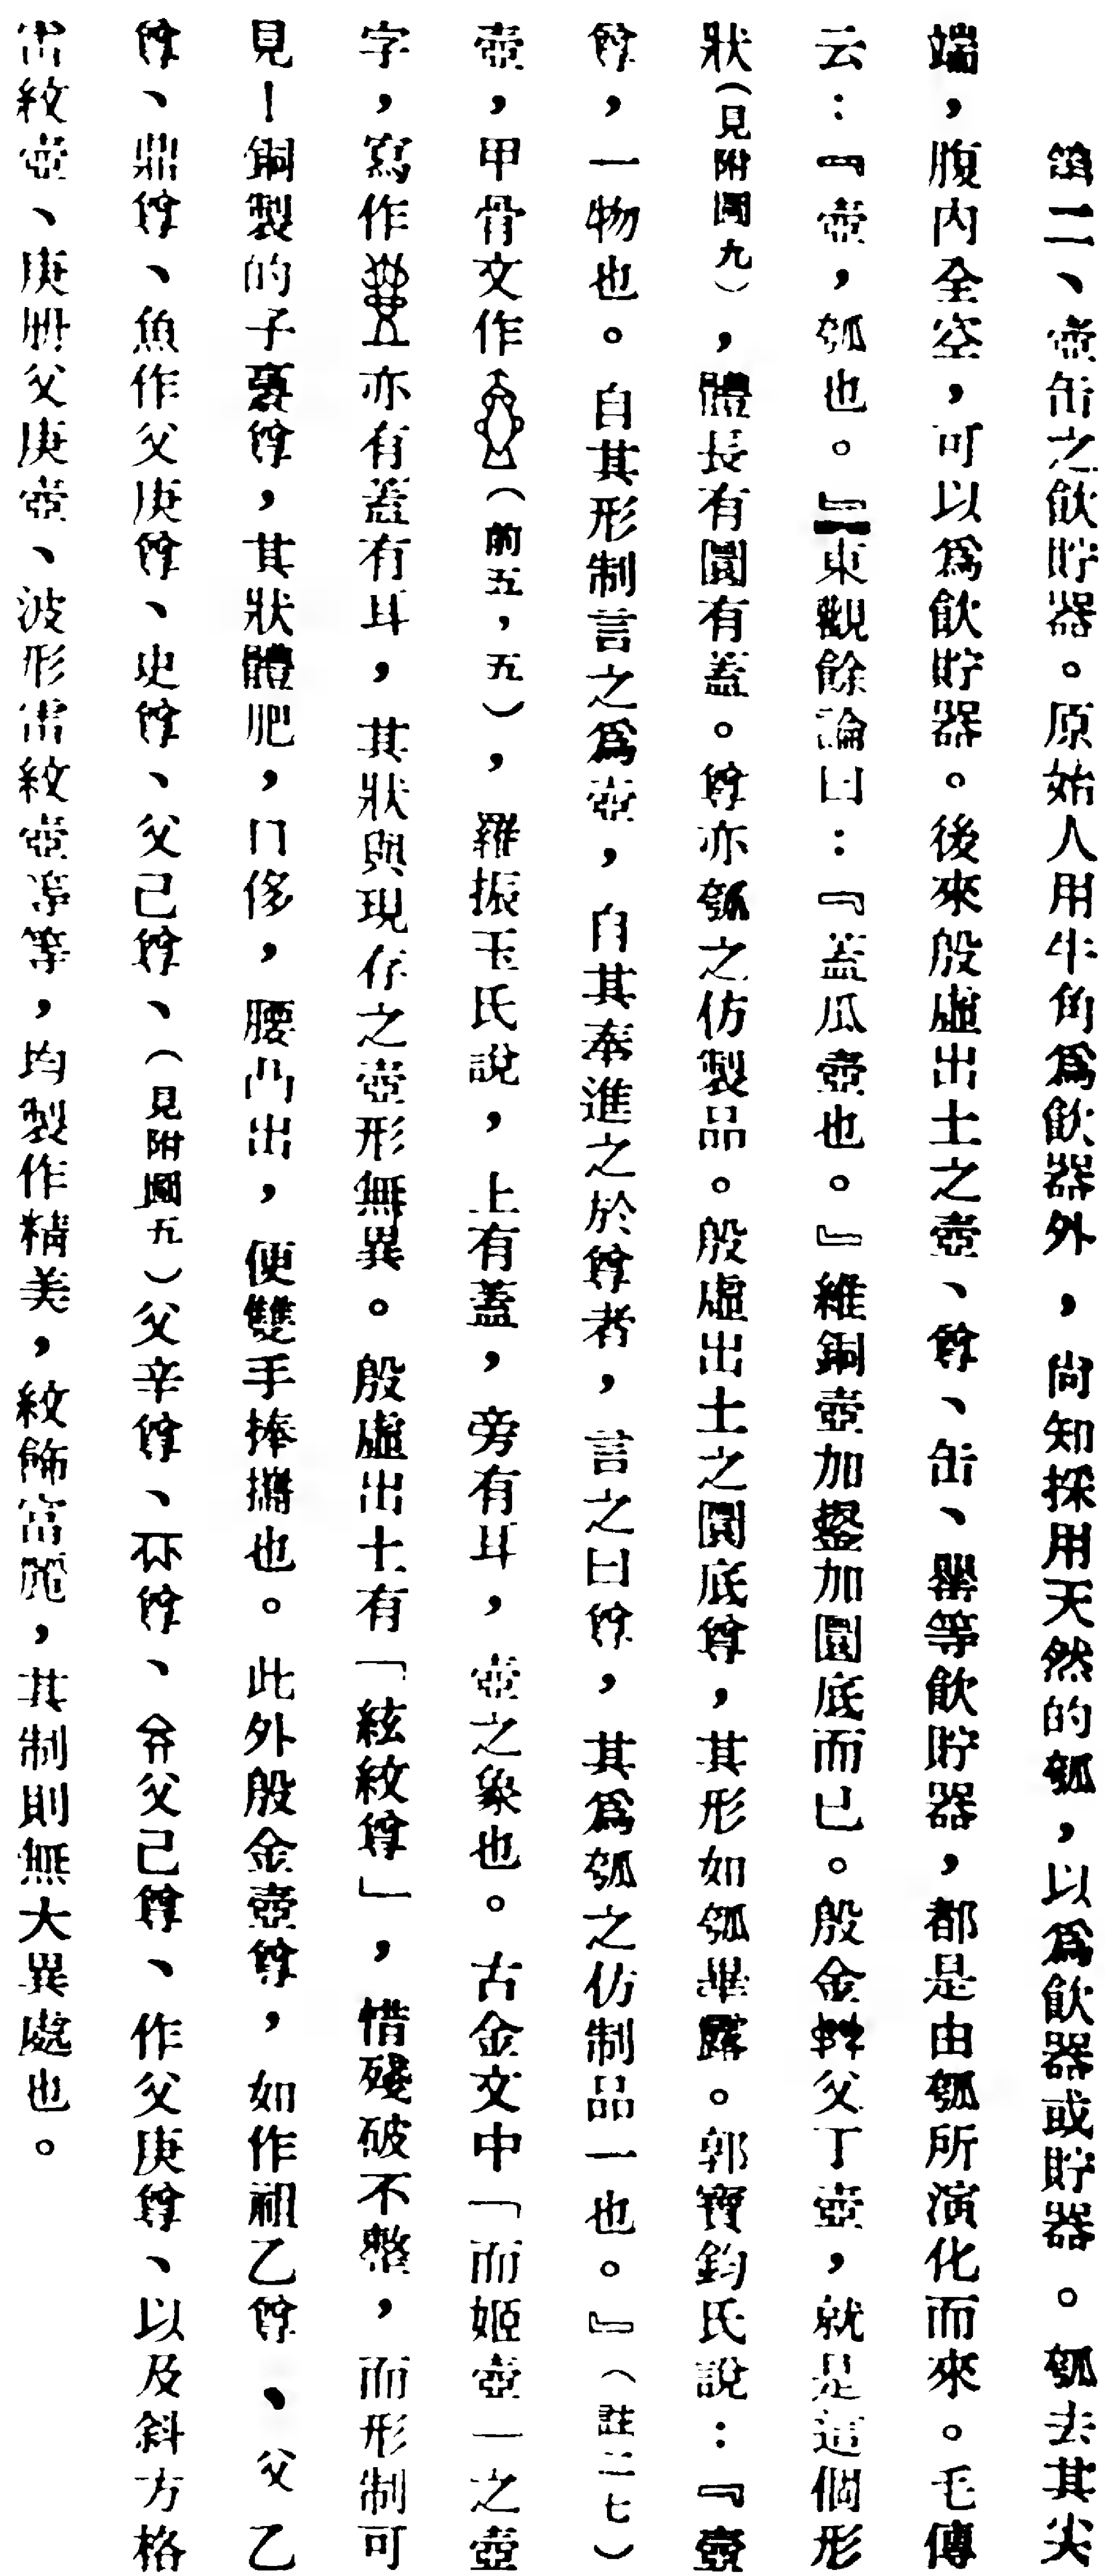 第二、壺缶之飲貯器。原始人用牛角爲飲器外，尙知採用天然的瓠，以爲飲器或貯器。瓠去其尖
端，腹內全空，可以爲飲貯器。後來殷虛出土之壺、尊、缶、罍等飲貯器，都是由瓠所演化而來。毛傳
云：『壺，瓠也。』東觀餘論曰：『蓋瓜壺也。』維銅壺加鋬加圜底而已。殷金父丁壺，就是這個形
狀（見附圖九），體長有圜有蓋。尊亦瓠之仿製品。殷虛出土之圜底尊，其形如瓠畢露。郭寶鈞氏說：『壺
尊，一物也。自其形制言之爲壺，自其奉進之於尊者，言之曰尊，其爲瓠之仿制品一也。』（註二七）
壺，甲骨文作（前五，五），羅振玉氏說，上有蓋，旁有耳，壺之象也。古金文中「而姬壺」之壺
字，寫作亦有蓋有耳，其狀與現存之壺形無異。殷虛出土有「絃紋尊」，惜殘破不整，而形制可
見—銅製的子尊，其狀體肥，口侈，腰凸出，便雙手捧攜也。此外殷金壺尊，如作祖乙尊、父乙
尊、鼎尊、魚作父庚尊、史尊、父己尊、（見附圖五）父辛尊、尊、父己尊、作父庚尊、以及斜方格
雷紋壺、庚册父庚壺、波形雷紋壺等，均製作精美，紋飾富麗，其制則無大異處也。